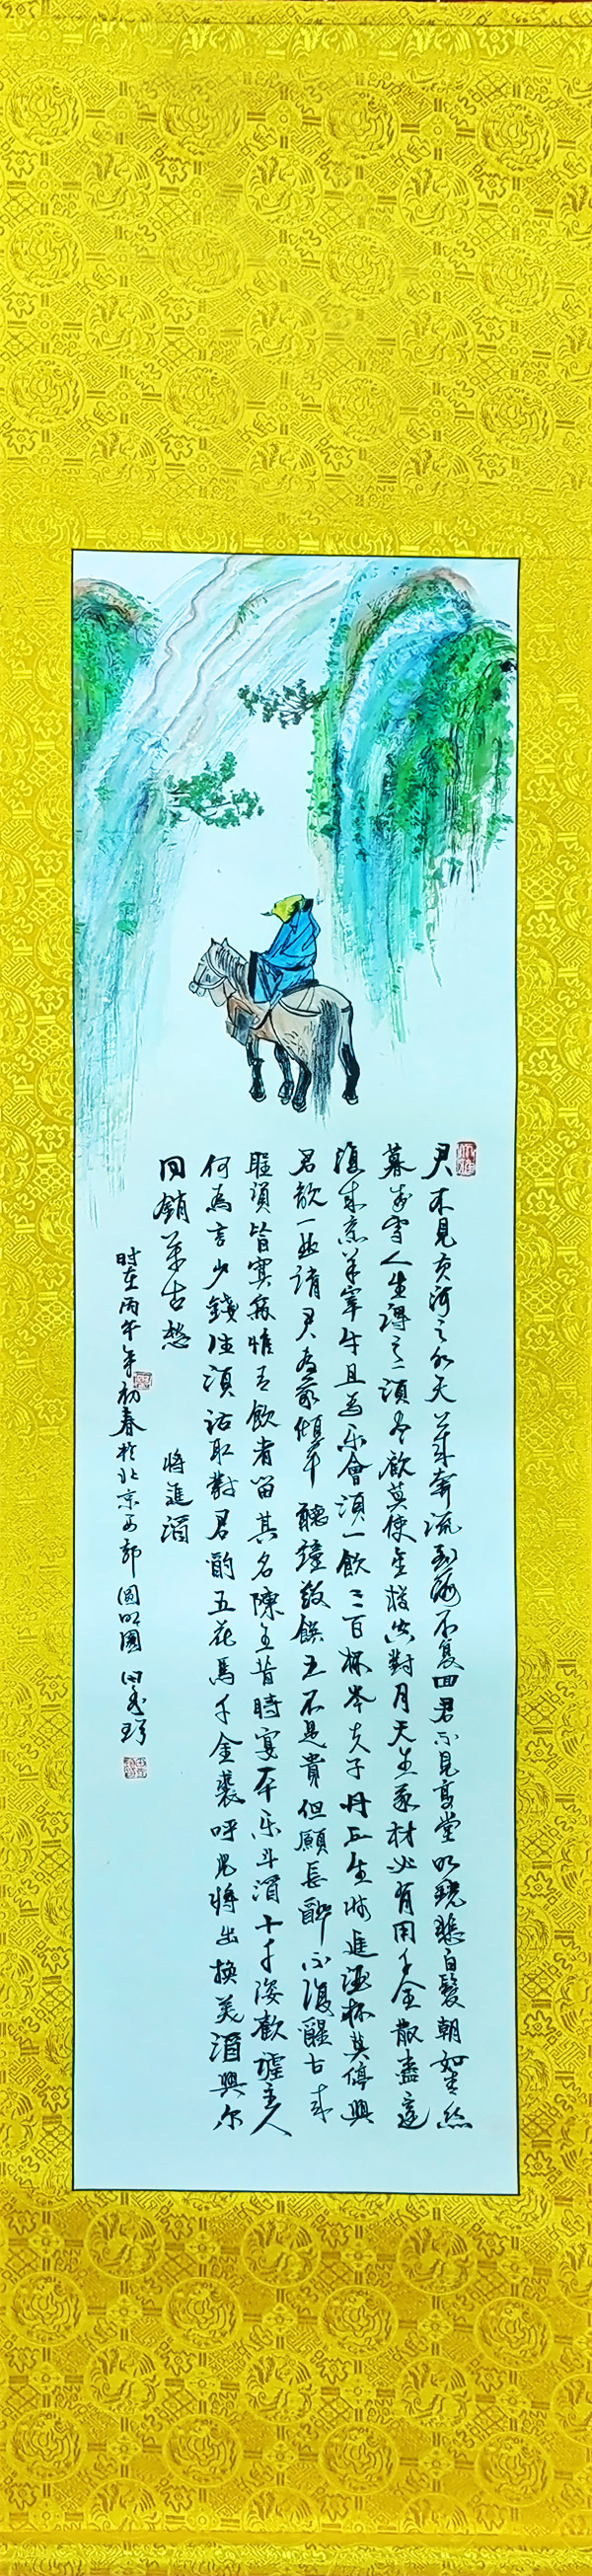 君不见黄河之水天上来奔流到海不复回君不见高堂明镜悲白发朝如青丝
暮成雪人生得意须尽欢莫使金樽空對月天生我材必有用千金散盡還
復來烹羊宰牛且為乐會須一飲三百杯岑夫子丹丘生将進酒杯莫停與
君歌一曲請君為我傾耳聽鐘鼓饌玉不足貴但願長醉不復醒古来
聖賢皆寞惟有飲者留其名陳王昔時宴平乐斗酒十千恣歡謔主人
何為言少錢徑須沽取對君酌五花馬千金裘呼兒將出換美酒與尔
同銷萬古愁 將進酒
时在丙午年初春於北京西郊圆明園